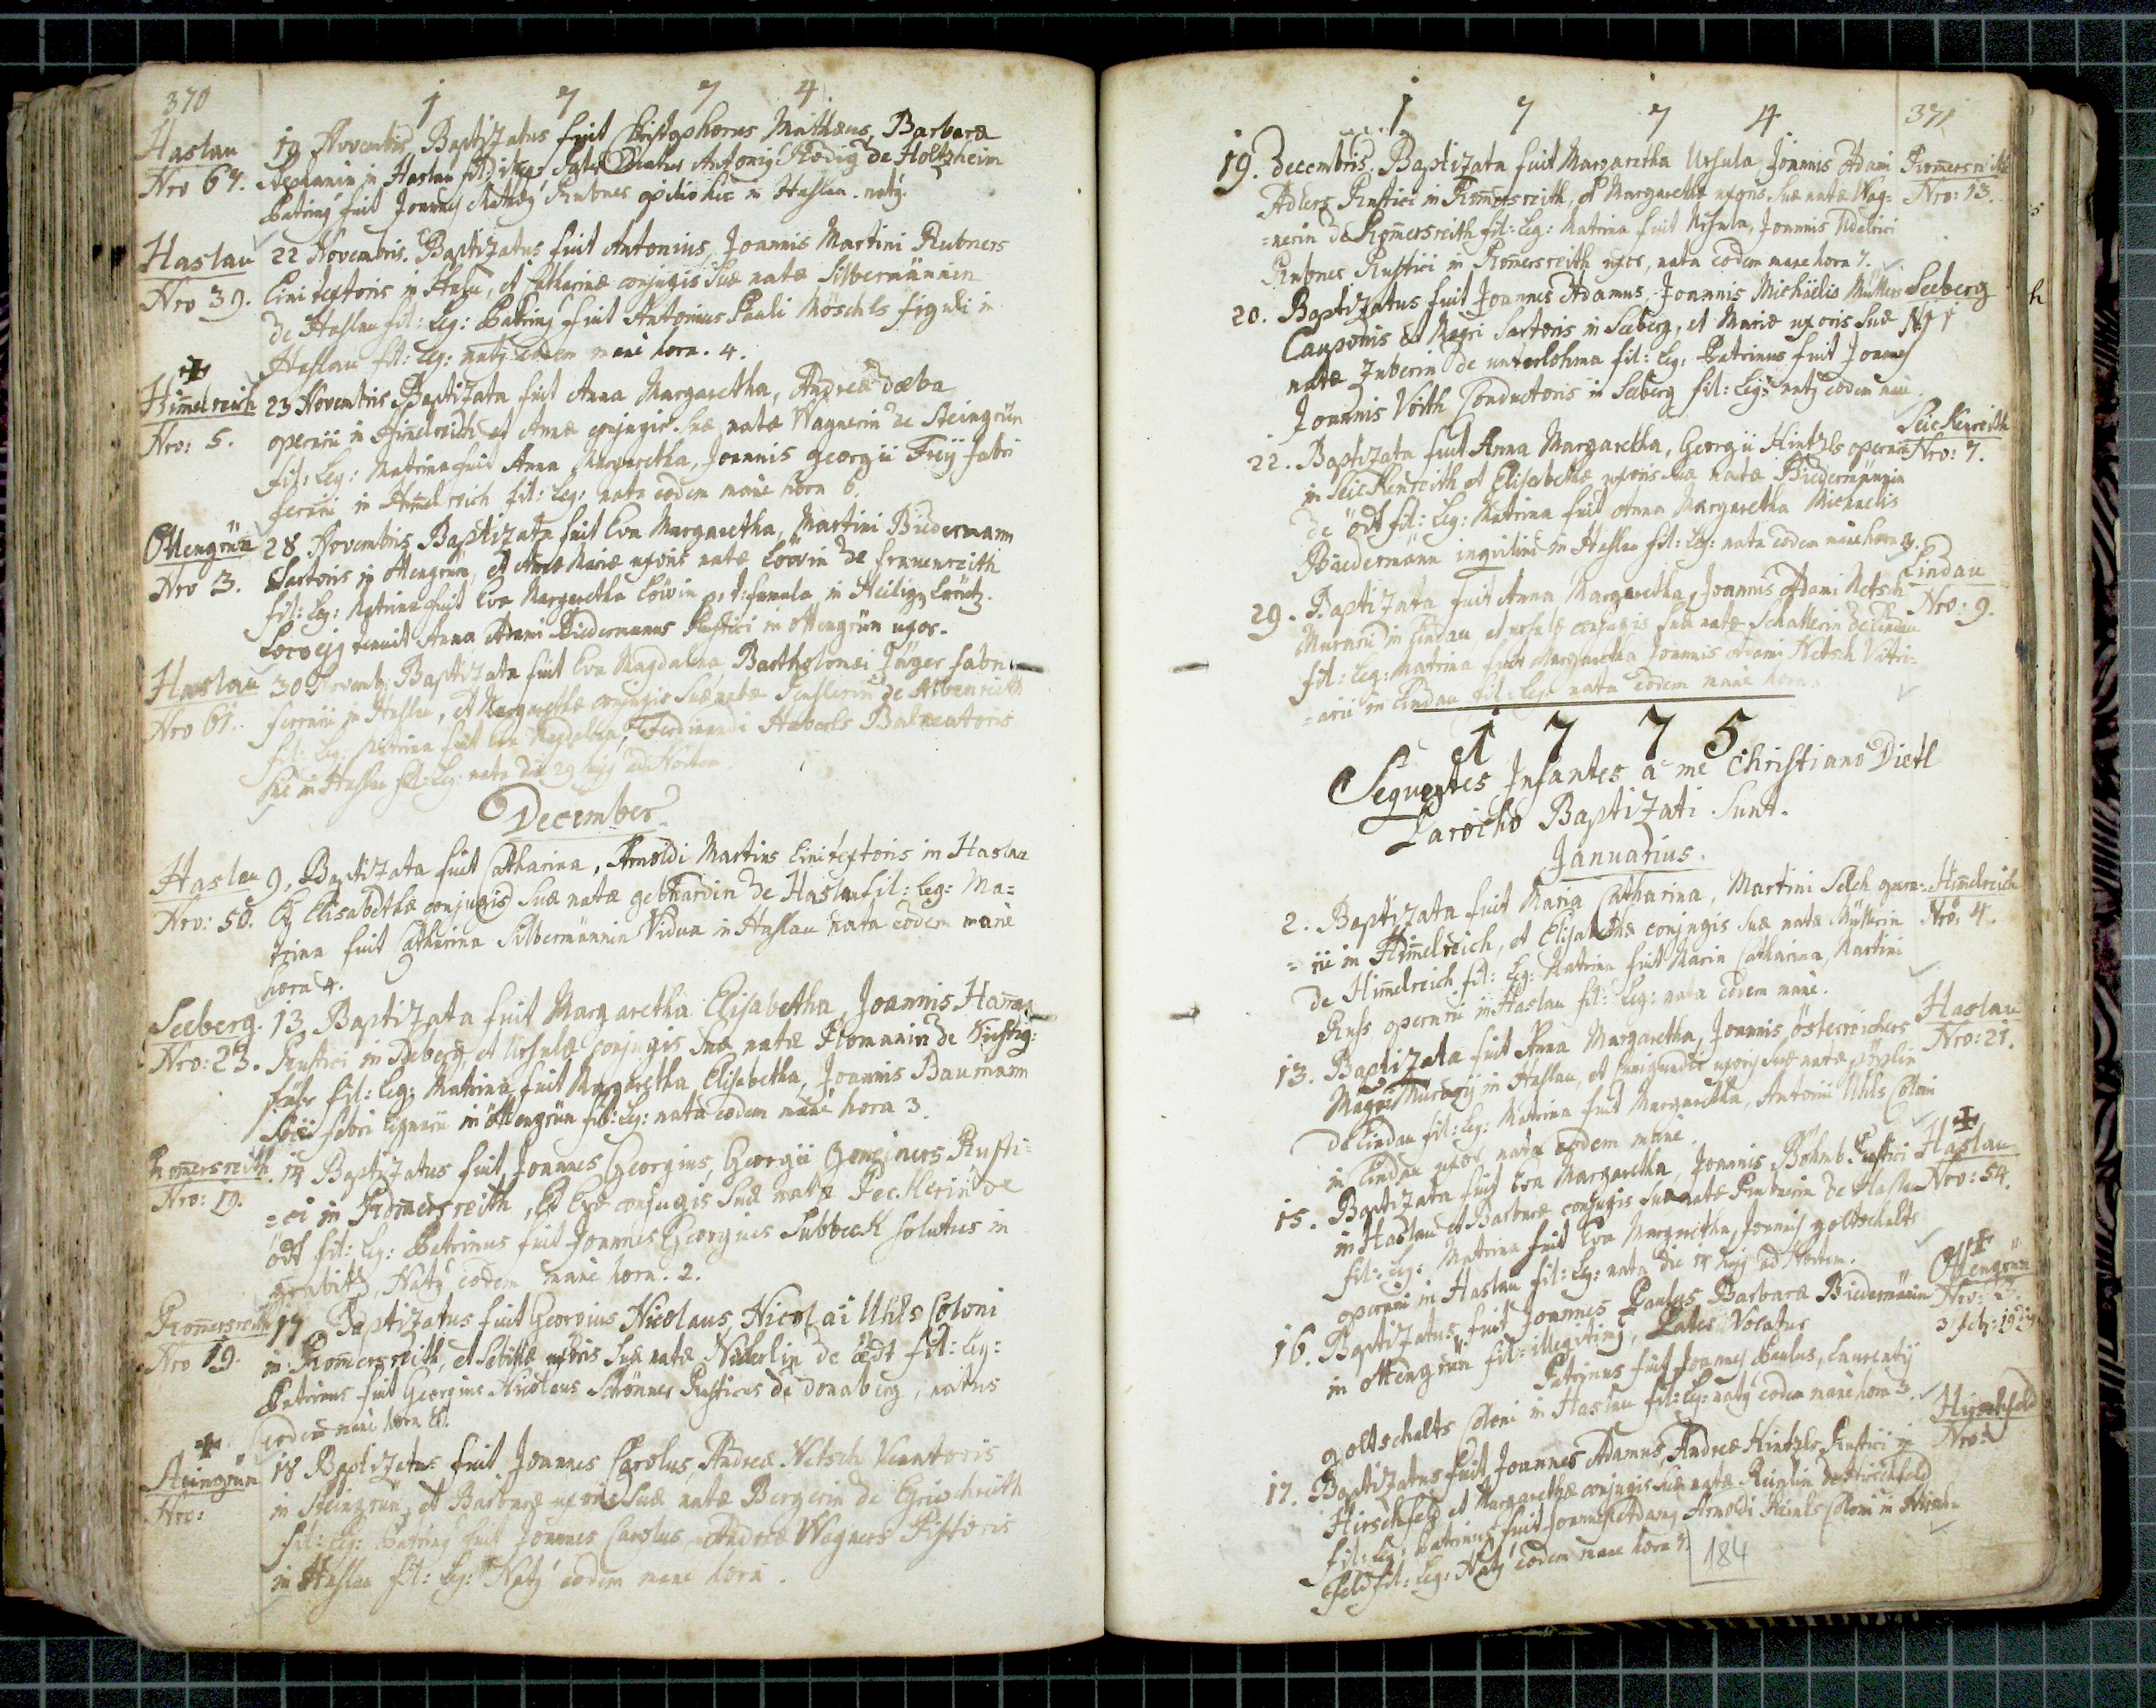 370
1 7 7 4
Haslau 19 Novembris Baptizatus fuit Christophorus Mathæus, Barbaræ
Nro 67. in Haslau fil: illeg: Pater Vocatus Antonig Rædig de Holtzheim
Patring fuit Joannes Rubner opilio hic in Haslau. natg.
Haslau 22 Novembris. Baptizatus fuit Antonius, Joannis Martini Rubners
Nro 39. Linitextoris in Haslau, et Catharinæ conjugis Suæ natæ Silbermännin
de Haslau fil: Leg: Patring fuit Antonius Pauli Möschls figuli in
Haslau fil: Leg: natg eodem mane hora. 4.
Him̅elreich 23 Novembris Baptizata fuit Anna Margaretha, Andreæ
Nro: 5. operarii in Him̅elreich et Annæ conjugis Suæ natæ Wagnerin de Steingrün
fil: Leg: Matrina fuit Anna Margaretha, Joannis Georgii Freÿ fabri
ferrarii in Him̅elreich fil: Leg: nata eodem mane hora 6.
Ottengrün 28 Novembris Baptizata fuit Eva Margaretha, Martini Biedermann
Nro 3. Sartoris in ottengrün, et Annæ Mariæ uxoris natæ Löwin de frauenreith
fil: Leg: Matrina fuit Eva Margaretha Löwin p: t: famula in Heilig
Loco ejg tenuit Anna Adami Biedermanns Rustici in ottengrün uxor.
Haslau 30 Novemb: Baptizata fuit Eva Magdalena, Bartholomæi Jäger fabri
Nro 61. ferrarii in Haslau, et Margarethæ conjugis Suæ natæ de Albenreith
fil: Leg: Matrina fuit Eva Magdalena, Ferdinandi Häberls Balneatoris
hic in Haslau fil: Leg: nata die 29 hujg ad Noctem
December
Haslau 9. Baptizata fuit Catharina, Arnoldi Martins Linitextoris in Haslau
Nro: 50. Et Elisabethæ conjugis Suæ natæ gebhardin de Haslau fil: Leg: Ma=
trina fuit Catharina Silbermännin Vidua in Haslau nata eodem mane
hora 4.
Seeberg. 13. Baptizata fuit Margaretha Elisabetha, Joannis
Nro: 23. Rustici in Seeberg et Ursulæ conjugis Suæ natæ de
fil: Leg: Matrina fuit Margaretha Elisabetha, Joannis Baumann
fabri lignarii in öttengrün fil: Leg: nata eodem mane hora 3.
Rom̅ersreith 14 Baptizatus fuit Joannes Georgius, Georgii Gemeiners Rusti=
Nro: 19. =ci in Rom̅ersreith, Et Evæ conjugis Suæ natæ Peckerin de
ödt fil: Leg: Patrinus fuit Joannes Georgius Subbeck solutus in
Natg eodem mane hora. 2.
Rom̅ersreith 17 Baptizatus fuit Georgius Nicolaus, Nicolai Uhls Coloni
Nro 19. in Rom̅ersreith, et uxoris Suæ natæ de ædt fil: Leg:
Patrinus fuit Georgius Nicolaus Schönner Rusticus de donaberg, natus
eodem mane hora 8.
Steingrün 18 Baptizatus fuit Joannes Carolus, Andreæ Netsch Venatoris
Nro: in Steingrün, et Barbaræ uxoris Suæ natæ Bergerin de
fil: Leg: Patring fuit Joannes Carolus Andreæ Wagners Pistoris
in Haslau fil: Leg: Natg eodem mane hora.
1 7 7 4 371
19. decembris. Baptizata fuit Margaretha Ursula Joannis Adami Rom̅ersreith
Adlers Rustici in Rom̅ersreith, et Margarethæ uxoris Suæ natæ Wag= Nro: 13.
=nerin de Rom̅ersreith fil: Leg: Matrina fuit Ursula, Joannis Udalrici
Rubner Rustici in Rom̅ersreith uxor, nata eodem mane hora 7.
20. Baptizatus fuit Joannes Adamus, Joannis Michäelis Müllers Seeberg
Cauponis et Magri Sartoris in Seeberg, et Mariæ uxoris Suæ
natæ Zuberin de unterlohma fil: Leg: Patrinus fuit Joannes
Joannis Voith Conductoris in Seeberg fil: Leg: natg eodem mane.
22. Baptizata fuit Anna Margaretha, Georgii Hintzls operarii Seickenreith
in Seickenreith et Elisabethæ uxoris Suæ natæ Biedermännin Nro: 7.
de ödt fil: Leg: Matrina fuit Anna Margaretha Michaelis
Biedermann inquilini in Haslau fil: Leg: nata eodem mane hora 3.
29. Baptizata fuit Anna Margaretha, Joannis Adami Netsch Lindau
Murarii in Lindau, et ursulæ conjugis suæ natæ Schatterin de Lindau Nro: 9.
fil: Leg: Matrina fuit Margaretha Joannis Adami Netsch Vitri=
=arii in Lindau fil: Leg: nata eodem mane hora.
1 7 7 5
Sequentes Infantes à me Christiano Dietl
Parocho Baptizati Sunt.
Januarius.
2. Baptizata fuit Maria Catharina, Martini Selch opera= Him̅elreich
=rii in Him̅elreich, et Elisabethæ conjugis Suæ natæ Müllerin Nro: 4.
de Him̅elreich fil: Leg: Matrina fuit Maria Catharina, Martini
Russ operarii in Haslau fil: Leg: nata eodem mane.
13. Baptizata fuit Anna Margaretha, Joannis österreichers Haslau
Magri Murarij in Haslau, et Cunigundæ uxoris Suæ natæ Nro: 21.
de Lindau fil: Leg: Matrina fuit Margaretha, Antonii Uhls Coloni
in Lindau uxor nata eodem mane.
15. Baptizata fuit Eva Margaretha, Joannis Böhmb Rustici Haslau
in Haslau et Barbaræ conjugis Suæ natæ Rubnerin de Haslau Nro: 54.
fil: Leg: Matrina fuit Eva Margaretha, Joannis goltschalts
operarii in Haslau fil: Leg: nata die 14 hujg ad Noctem.
16. Baptizatus fuit Joannes Paulus Barbaræ Biedermänin Ottengrün
in ottengrün fil: illegiting, Pater Vocatus Nro: 3.
Patrinus fuit Joannes Paulus, Laurentij
goltschalts Coloni in Haslau fil: Leg: natg eodem mane hora 3.
17. Baptizatus fuit Joannes Adamus, Andreæ Hintzls Rustici in Hirschfeld
Hirschfeld et Margarethæ conjugis Suæ natæ de Hirschfeld Nro:
fil: Leg: Patrinus fuit Joannes Adamg Arnoldi Coloni in Hirsch=
feld fil: Leg: Natg eodem mane hora 7.
184